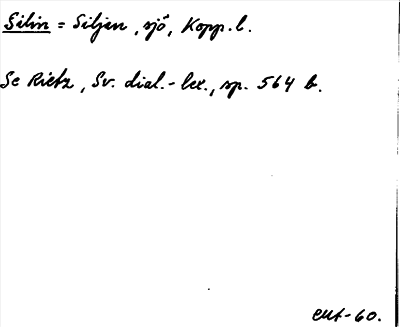 Silin = Siljan, sjö, Kopp. l.
Se Rietz, Sv. dial.-lex., sp. 564 b.
-60.